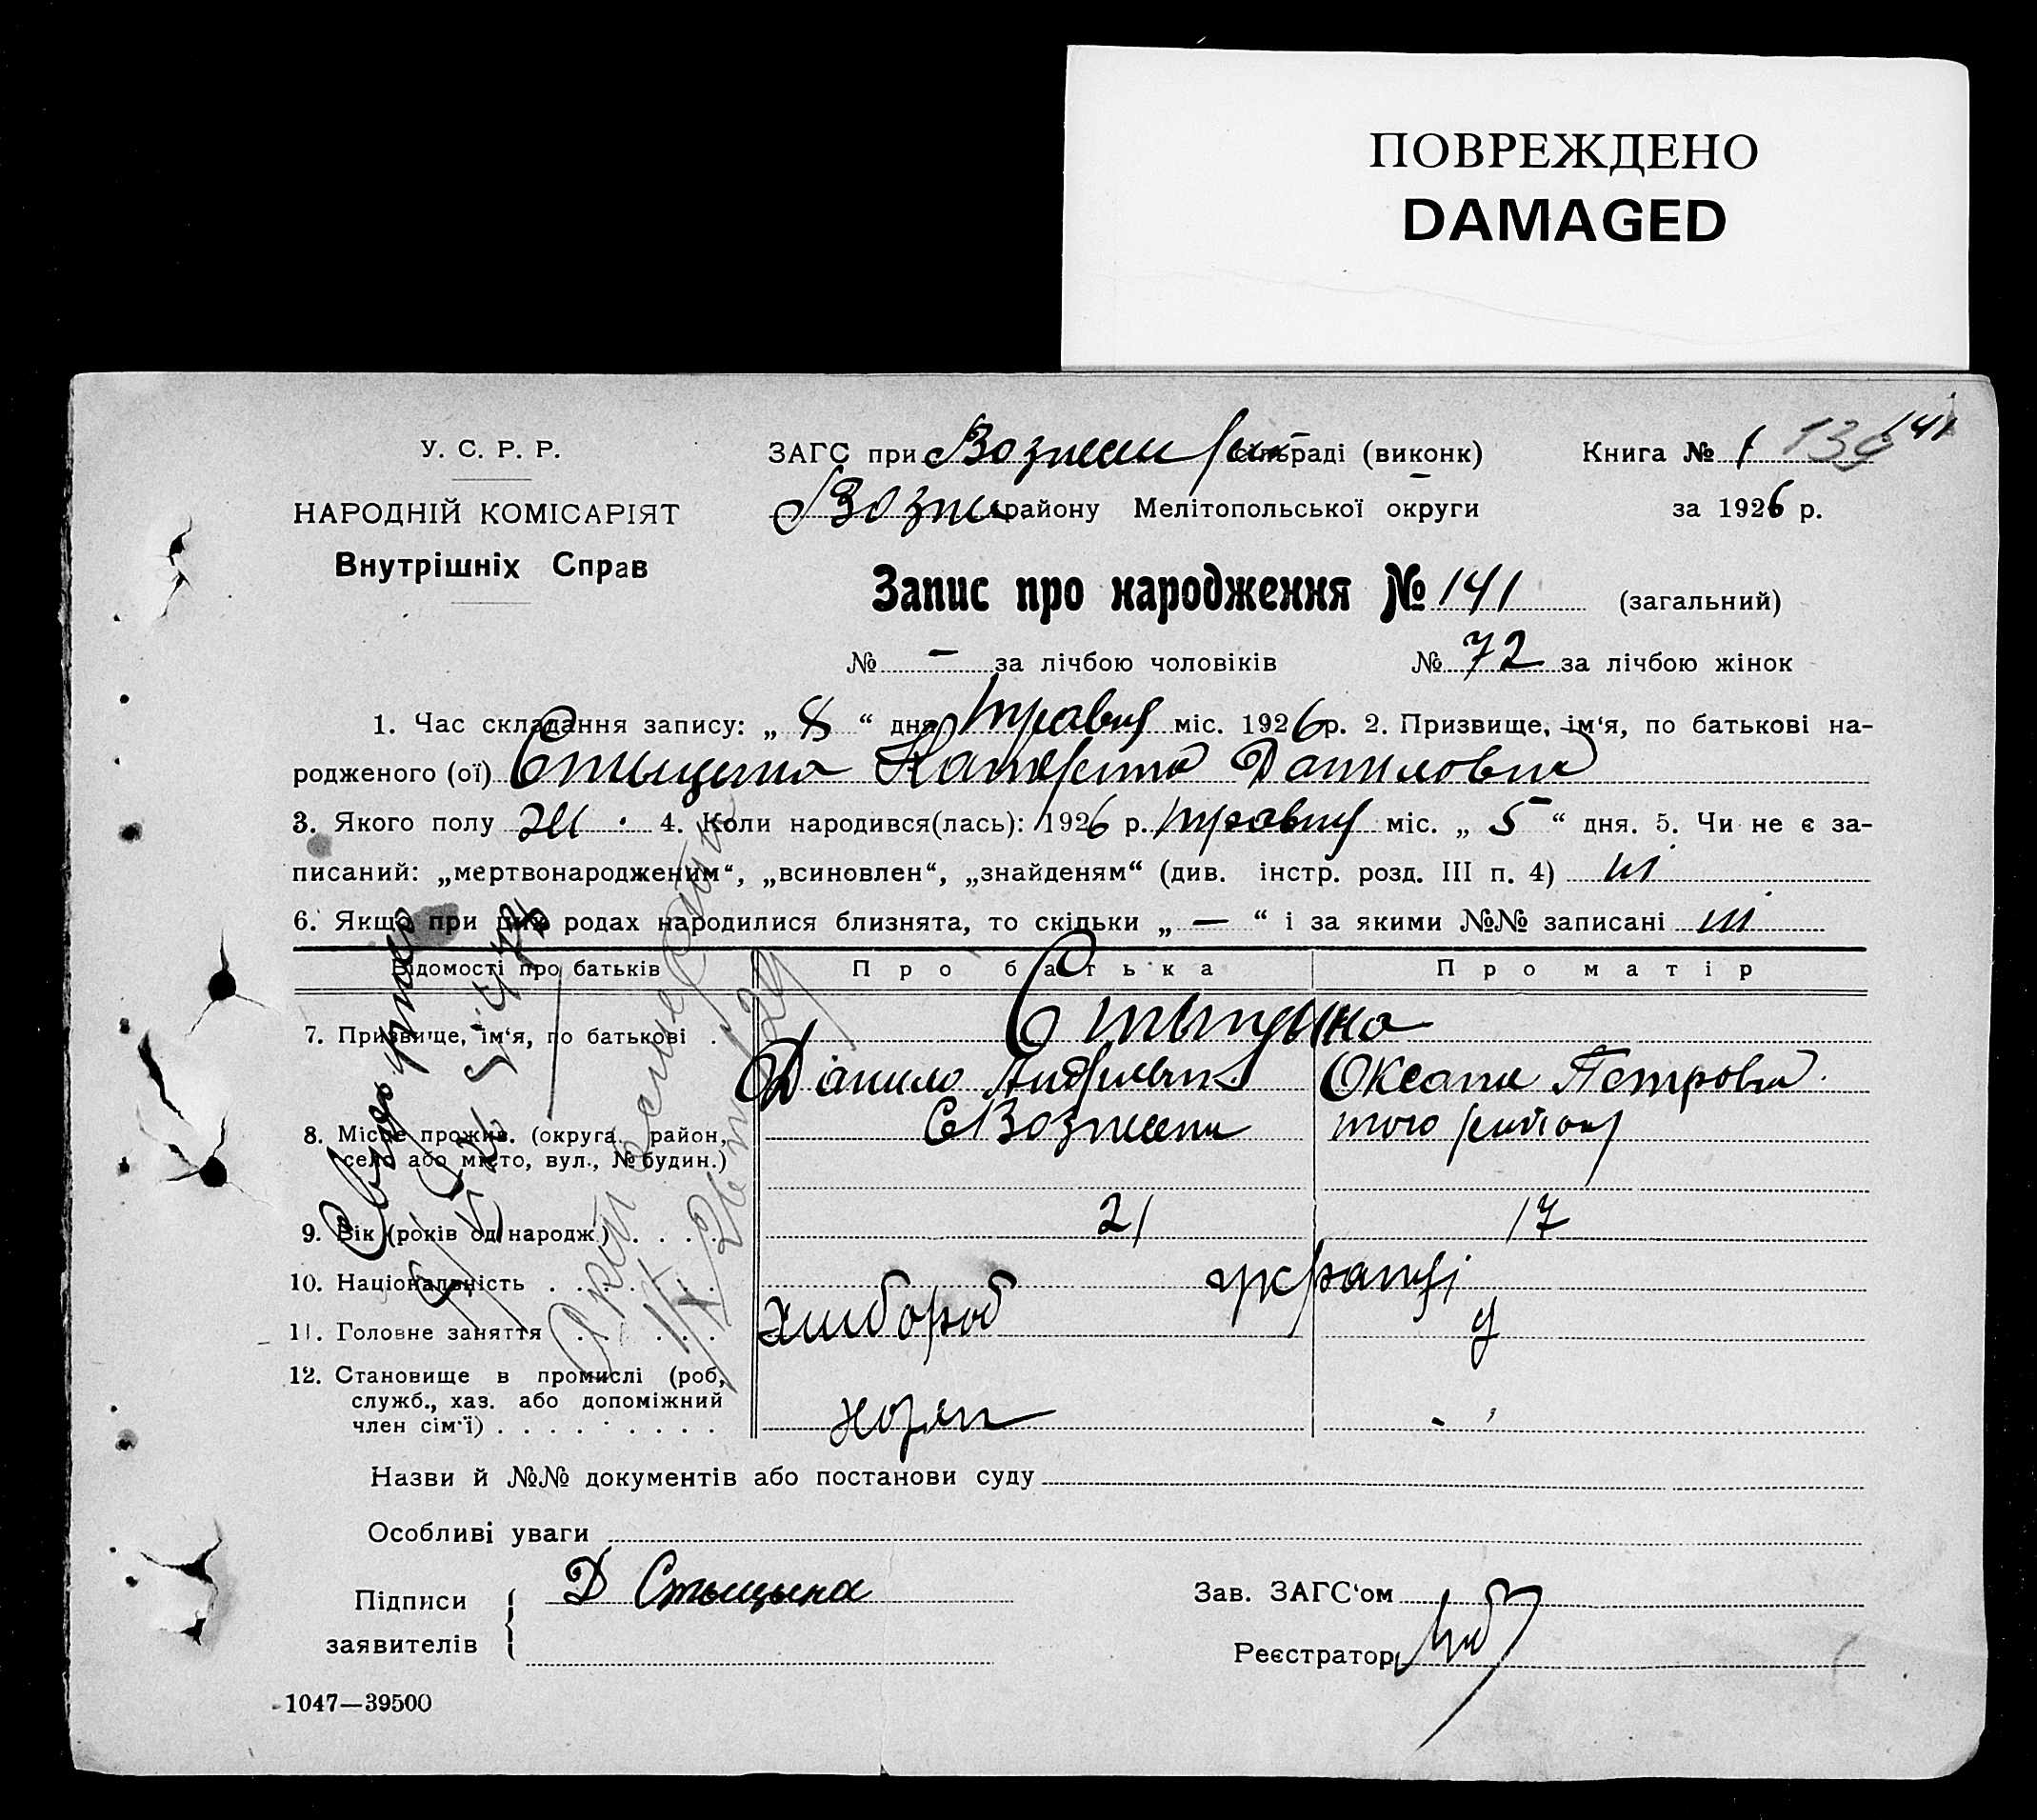 ПОВРЕЖДЕНО
DAMAGED
У. С. Р. Р.
НАРОДНІЙ КОМІСАРІЯТ
Внутрішніх Справ
ЗАГС при Вознесен рай сільраді (виконк)
Возне району Мелітопольської округи
Книга № 1 139 141
за 1926 р.
Запис про народження № 141 (загальний)
№ — за лічбою чоловіків № 72 за лічбою жінок
1. Час складання запису: „ 8 “ дня травня міс. 1926 р. 2. Призвище, ім‘я, по батькові на-
родженого (ої) Стыцына Катерина Даниловна
3. Якого полу жі. 4. Коли народився(лась): 1926 р. травня міс. „ 5 “ дня. 5. Чи не є за-
писаний: „мертвонародженим“, „всиновлен“, „знайденям“ (див. інстр. розд. III п. 4) ні
6. Якщо при цих родах народилися близнята, то скільки „ — “ і за якими №№ записані ні
Відомості про батьків
Про батька
Про матір
7. Призвище, ім‘я, по батькові .
Стыцына
Данило Андреевич
Оксана Петровна
8. Місце прожив. (округа, район,
село або місто, вул., № будин.)
С Вознесен
того району
9. Вік (років од народж.) . . . .
21
17
10. Національність . . . . . . .
українці
11. Головне заняття . . . . .
хлибороб
12. Становище в промислі (роб,
служб., хаз. або допоміжний
член сім‘ї) . . . . . . . .
Назви й №№ документів або постанови суду
Особливі уваги
Підписи
заявителів
Д Стыцына
Зав. ЗАГС‘ом
Реєстратор
1047—39500